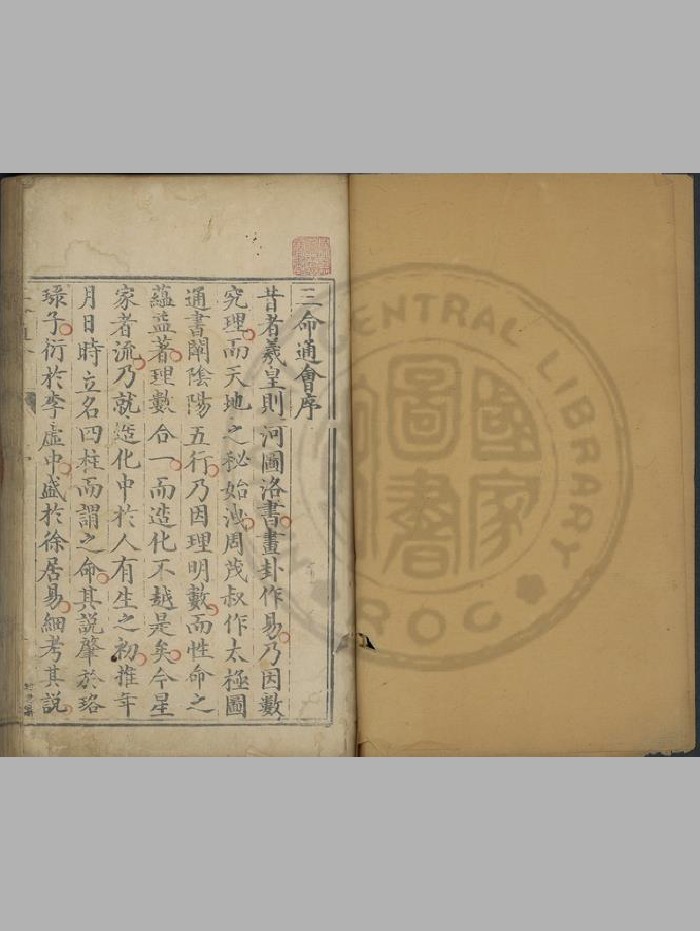 三命通會序
昔者羲皇則河圖洛書畫卦作易乃因數
究理而天地之秘始洩周茂叔作太極圖
通書闡陰陽五行乃因理明數而性命之
蘊益著理數合一而造化不越是矣今星
家者流乃就造化中於人有生之初推年
月日時立名四柱而謂之命其說肇於珞
琭子衍於李虛中盛於徐居易細考其說
國家圖書
CENTRAL LIBRARY
ROC